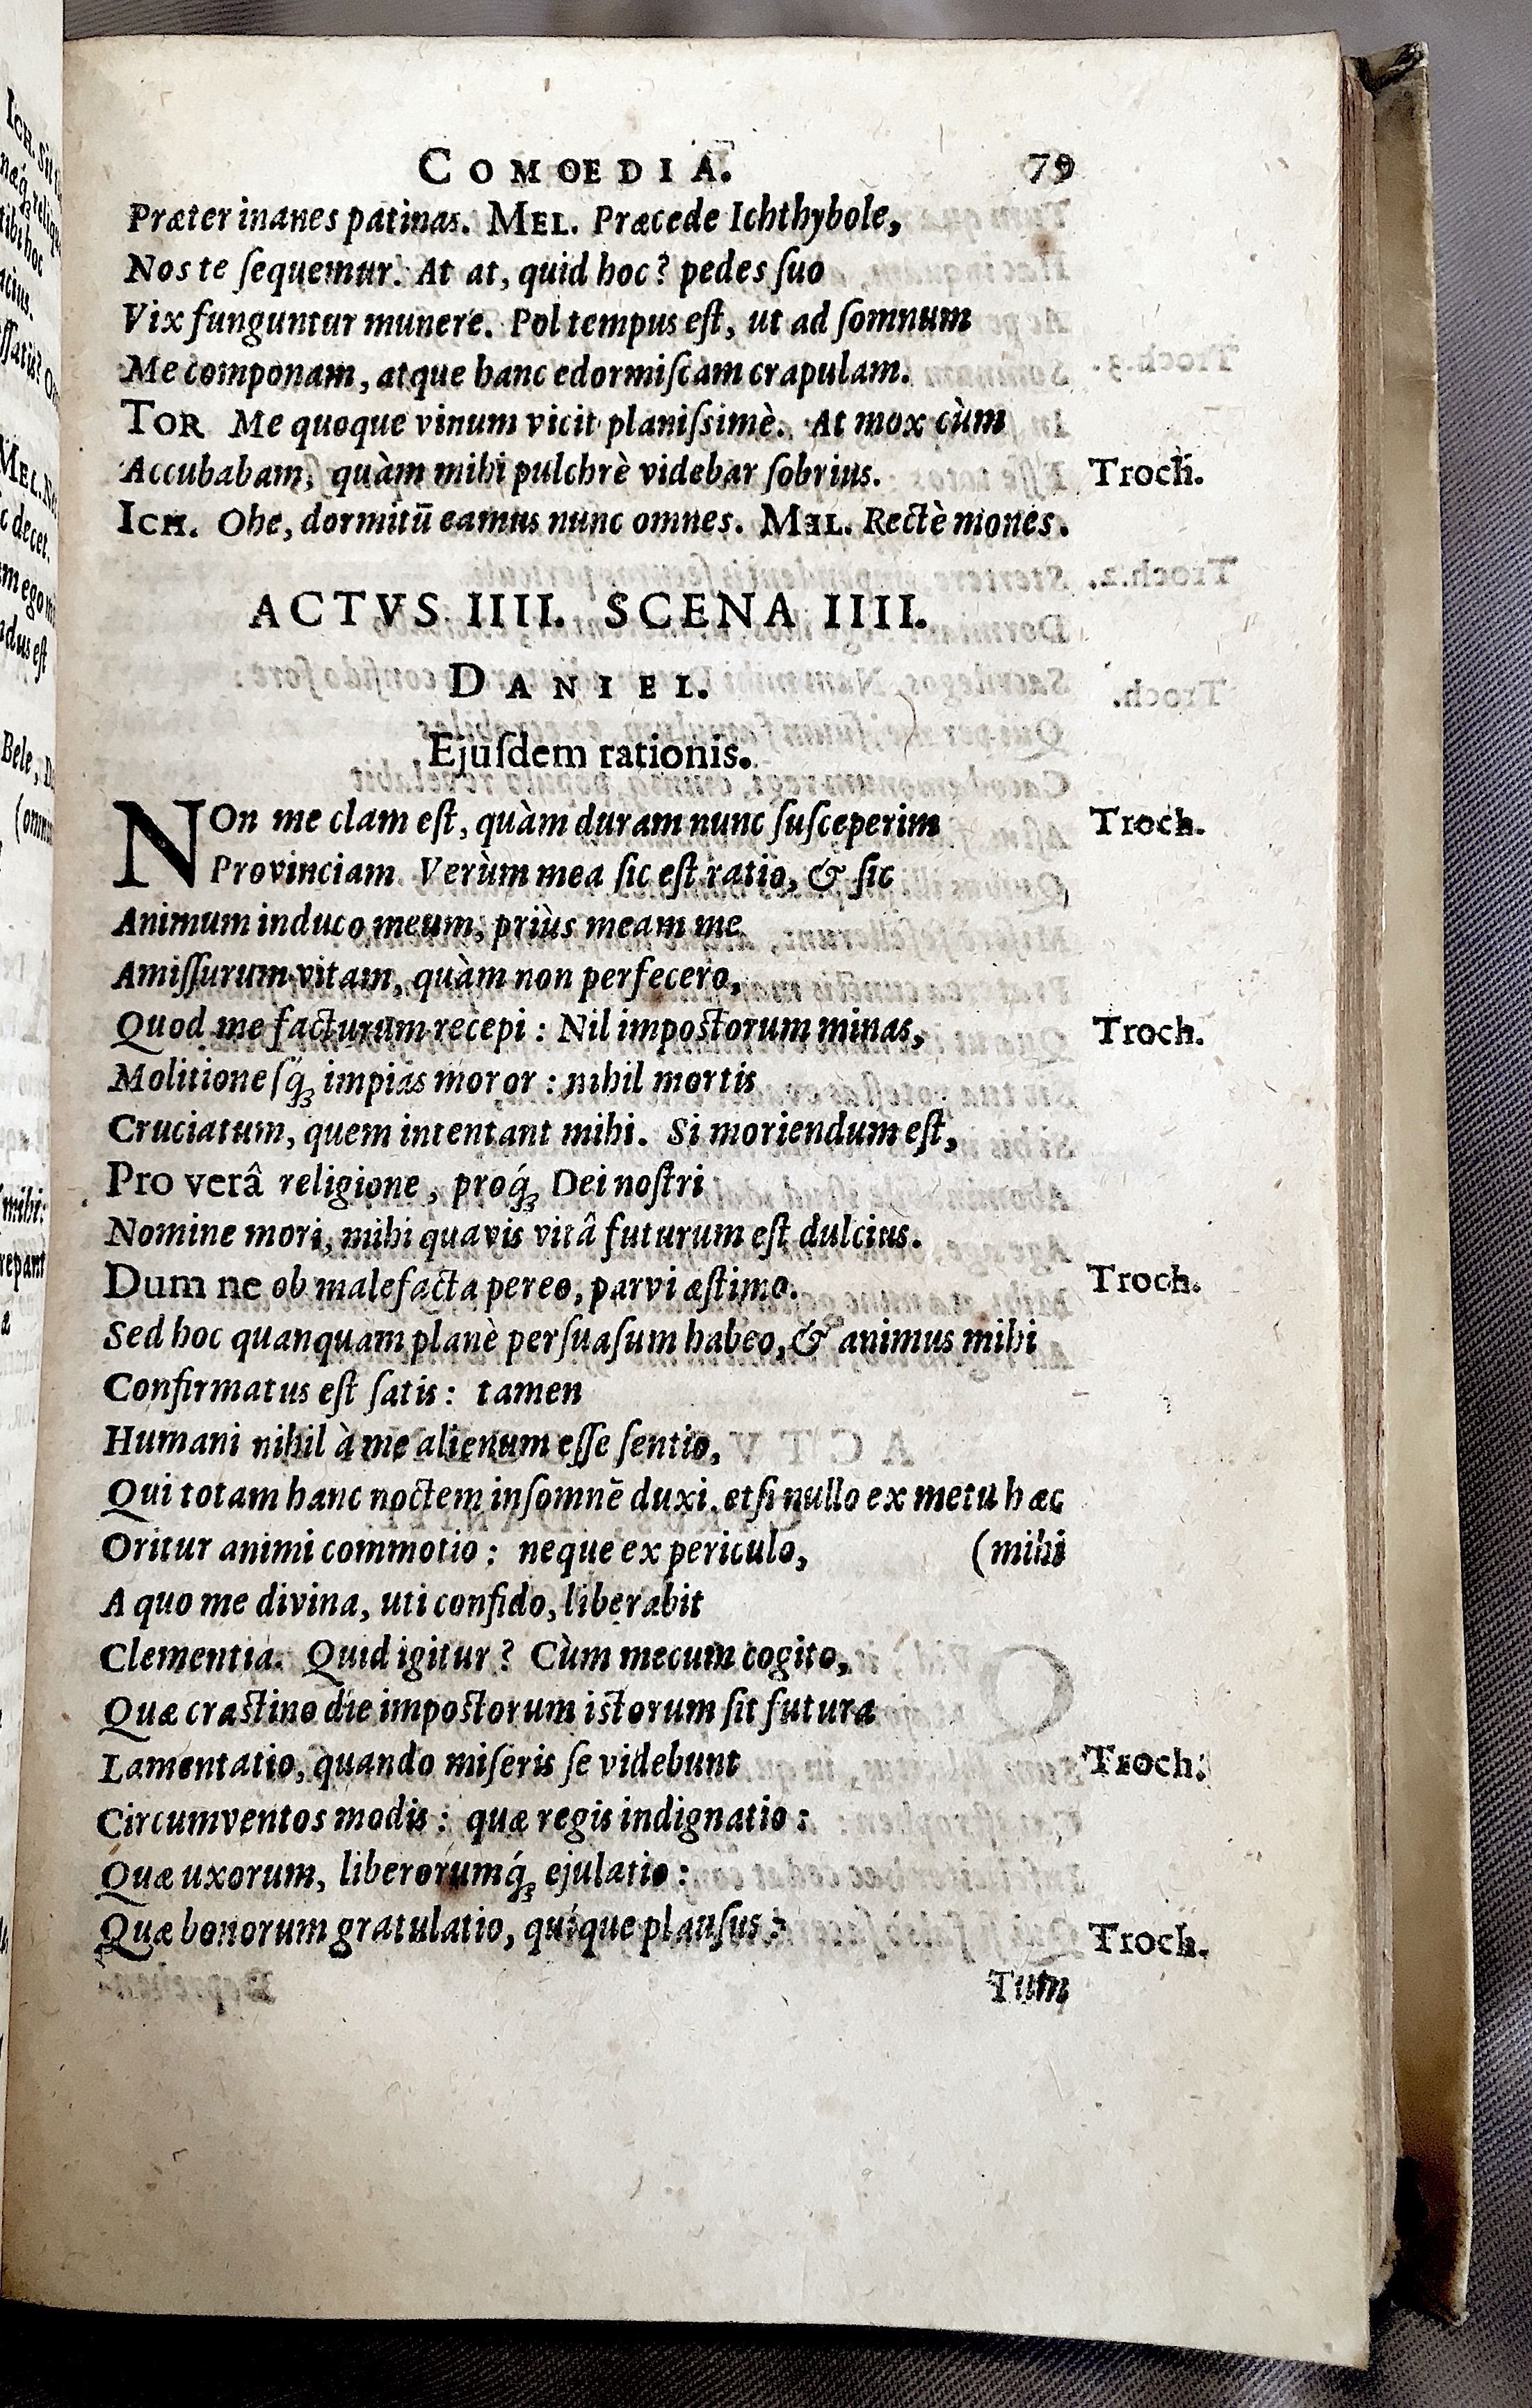 COMŒDIA. 79
Præter inanes patinas. MEL. Præcede Ichthybole,
Nos te ſequemur. At at, quid hoc? pedes ſuo
Vix funguntur munere. Pol tempus eſt, ut ad ſomnum
Me componam, atque hanc edormiſcam crapulam.
TOR Me quoque vinum vicit planiſsimè. At mox cùm
Accubabam, quàm mihi pulchrè videbar ſobrius. Troch.
ICH. Ohe, dormitū eamus nunc omnes. MEL. Rectè mones.
ACTVS IIII. SCENA IIII.
DANIEL.
Ejuſdem rationis.
NOn me clam eſt, quàm duram nunc ſuſceperim Troch.
Provinciam. Verùm mea ſic eſt ratio, & ſic
Animum induco meum, priùs meam me
Amiſſurum vitam, quàm non perfecero,
Quod me facturum recepi: Nil impostorum minas, Troch.
Molitioneſq́ꝫ impias moror: nihil mortis
Cruciatum, quem intentant mihi. Si moriendum eſt,
Pro verâ religione, proq́ꝫ Dei noſtri
Nomine mori, mihi quavis vitâ futurum eſt dulcius.
Dum ne ob malefacta pereo, parvi æſtimo. Troch.
Sed hoc quanquam planè perſuaſum habeo, & animus mihi
Confirmatus eſt ſatis: tamen
Humani nihil à me alienum eſſe ſentio,
Qui totam hanc noctem inſomnē duxi. etſi nullo ex metu hæc
Oritur animi commotio: neque ex periculo, (mihi
A quo me divina, uti confido, liberabit
Clementia. Quid igitur? Cùm mecum cogito,
Quæ crastino die impostorum istorum ſit futura
Lamentatio, quando miſeris ſe videbunt Troch.
Circumventos modis: quæ regis indignatio:
Quæ uxorum, liberorumq́ꝫ ejulatio:
Quæ bonorum gratulatio, quíque plauſus: Troch.
Tum